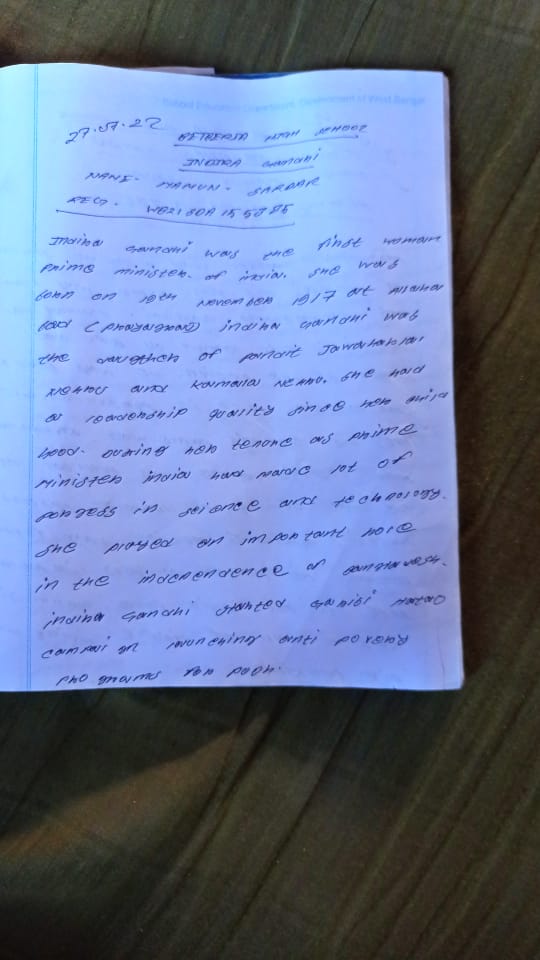 School Education Department, Government of West Bengal
27.07.22
BETBERIA HIGH SCHOOL
INDIRA Gandhi
NAME- MAMUN - SARDAR
REG -
Indira Gandhi was the first woman
prime minister of india. She was
born on 19th november 1917 at Allaha
bad (prayagraj) indira Gandhi was
the daughter of pandit Jawaharlal
Nehru and Kamala Nehru. She had
a leadership quality since her child
hood. During her tenure as prime
Minister india had made lot of
pongess in science and technology.
She played an important role
in the independence of Bangladesh.
indira Gandhi started Garibi Hatao
campaign launching anti poverty
programs for poor.